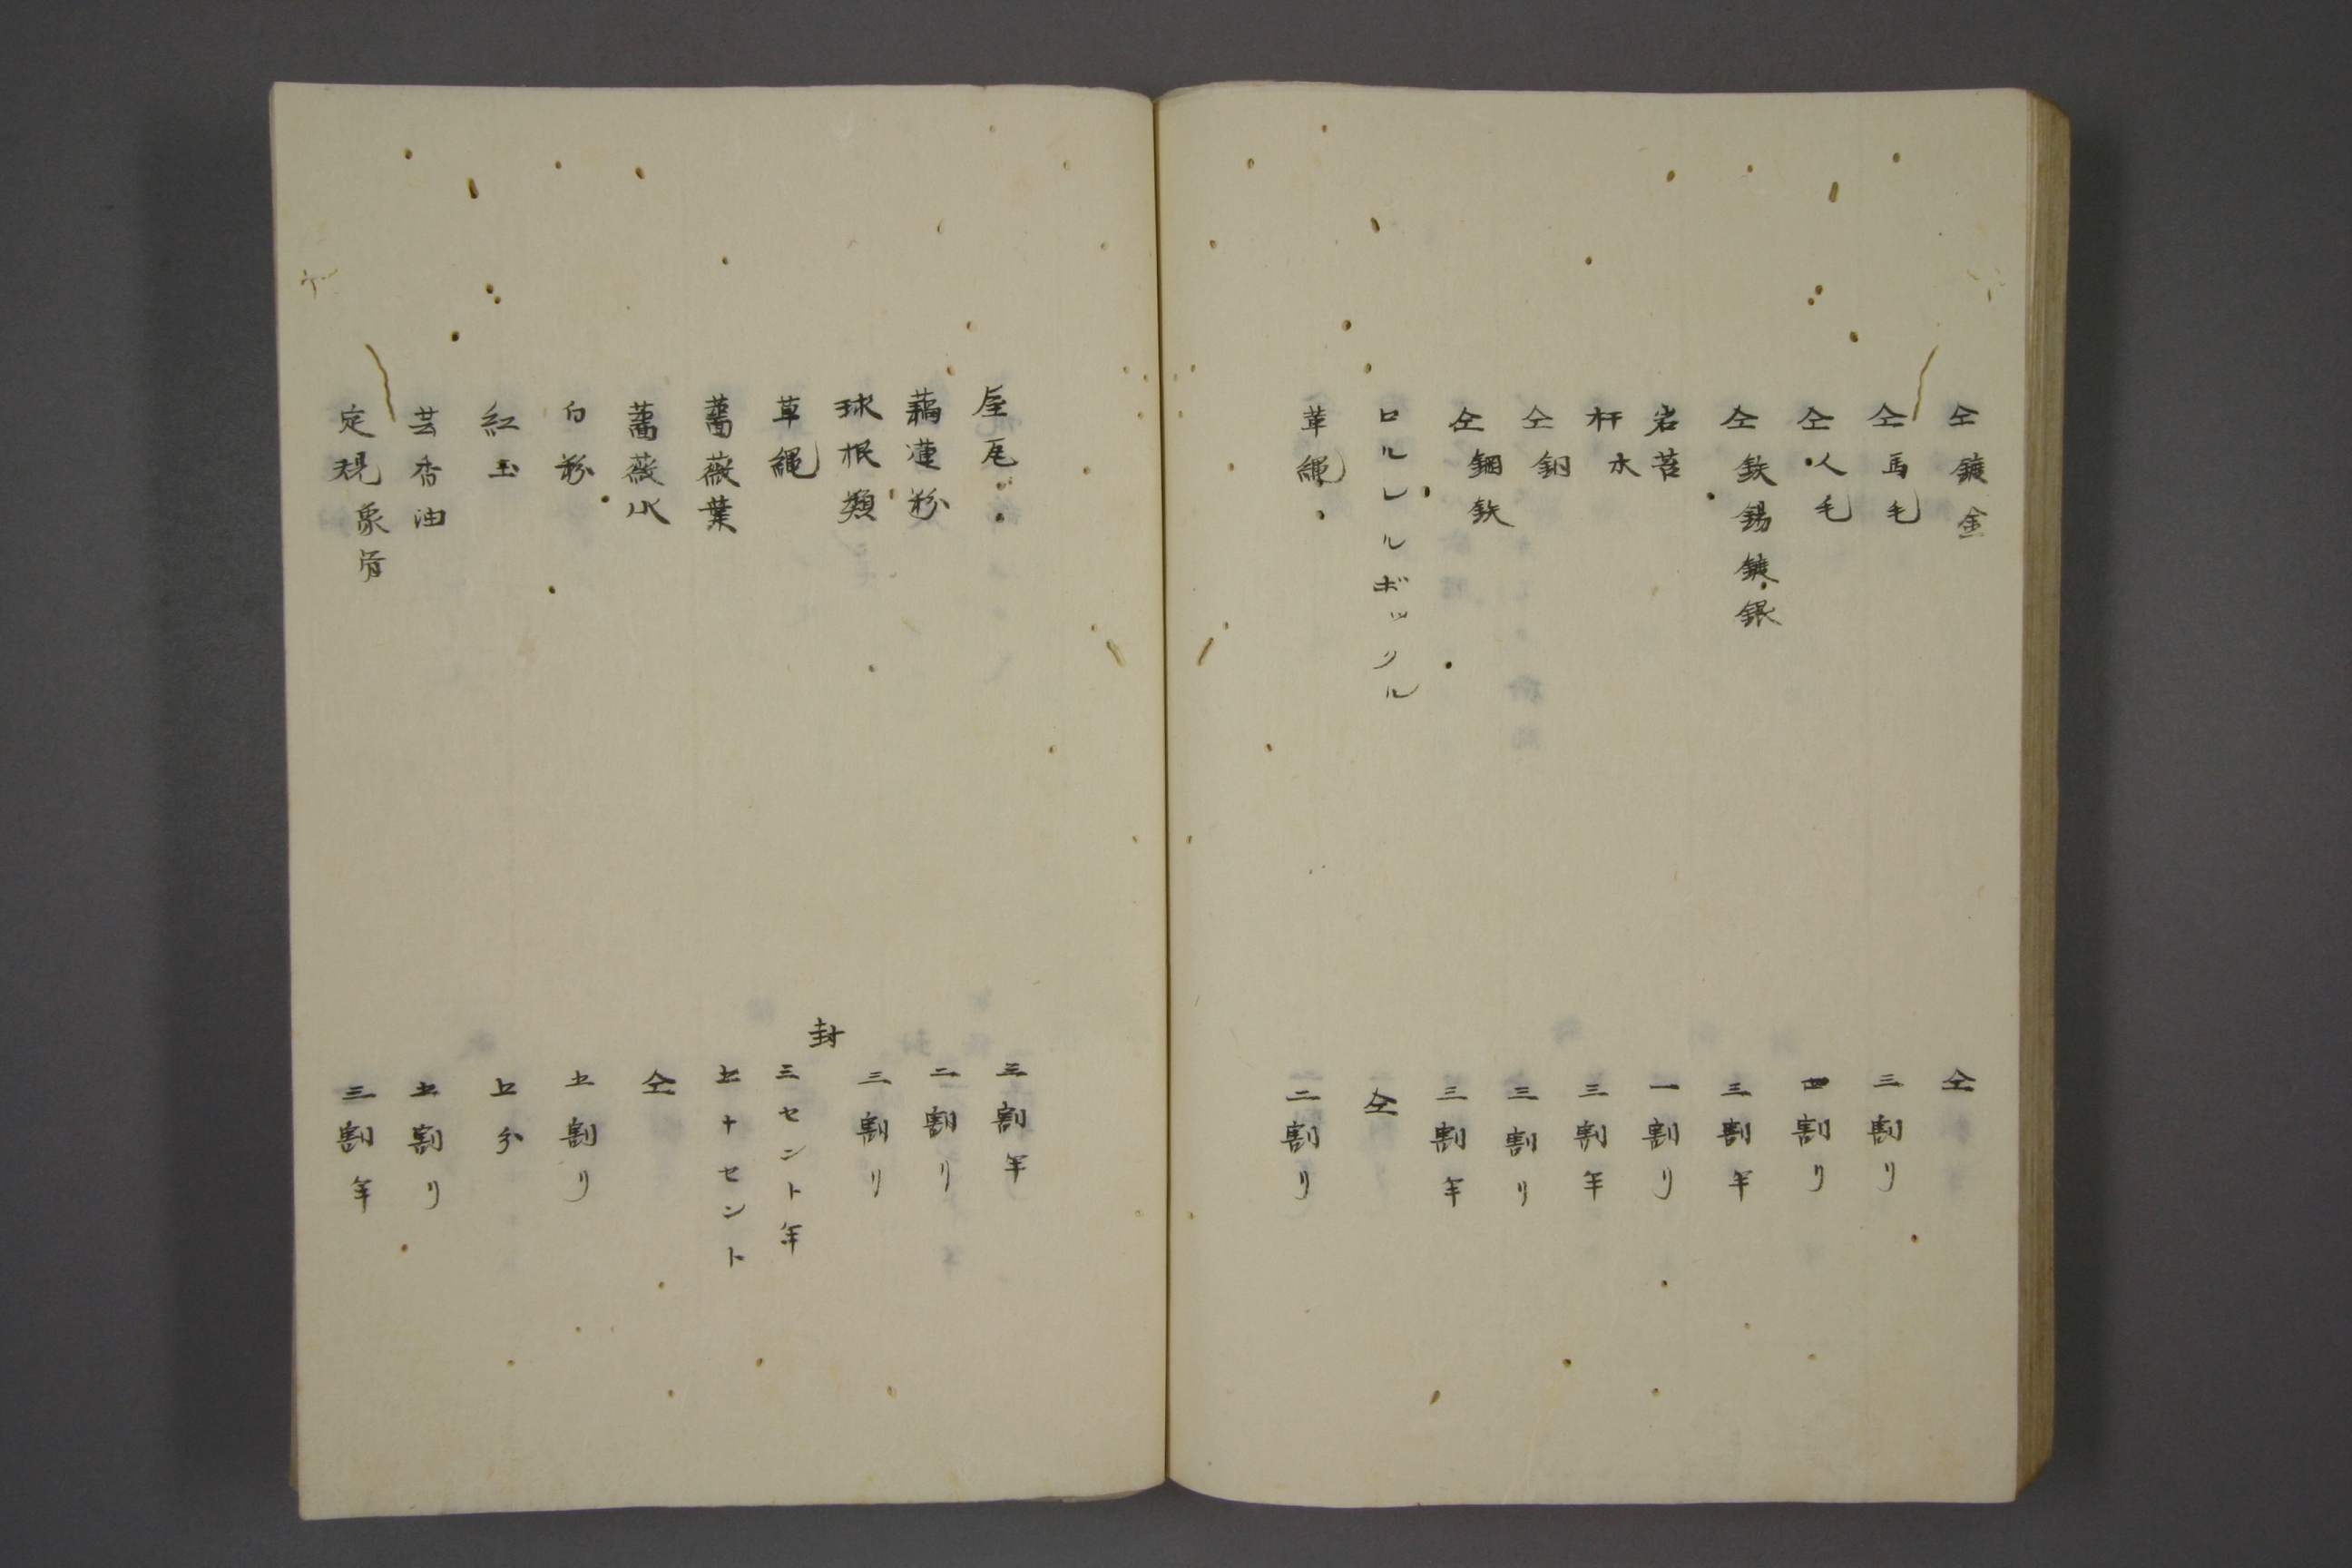 仝鍍金 仝
仝馬毛 三割り
仝人毛 四割り
仝鉄錫鍍銀 三割半
岩苔 一割り
杆水 三割半
仝銅 三割り
仝鋼鉄 三割半
ロルレルボックル 仝
草縄 二割り
屋瓦 三割半
藕蓮粉 二割り
球根類 三割り
草縄 封三セント半
薔薇葉 七十セント
薔薇水 仝
白粉 七割り
紅玉 七分
芸香油 七割り
定規象骨 三割半